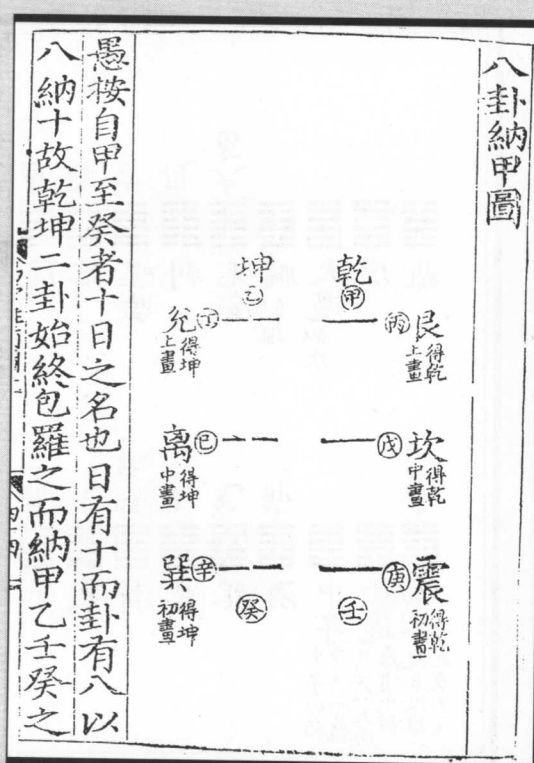 八卦納甲圖
乾
甲
艮
丙
得乾
上畫
坎
戊
得乾
中畫
震
庚
得乾
初畫
壬
坤
乙
兌
丁
得坤
上畫
離
己
得坤
中畫
巽
辛
得坤
初畫
癸
愚按自甲至癸者十日之名也日有十而卦有八以
八納十故乾坤二卦始終包羅之而納甲乙壬癸之